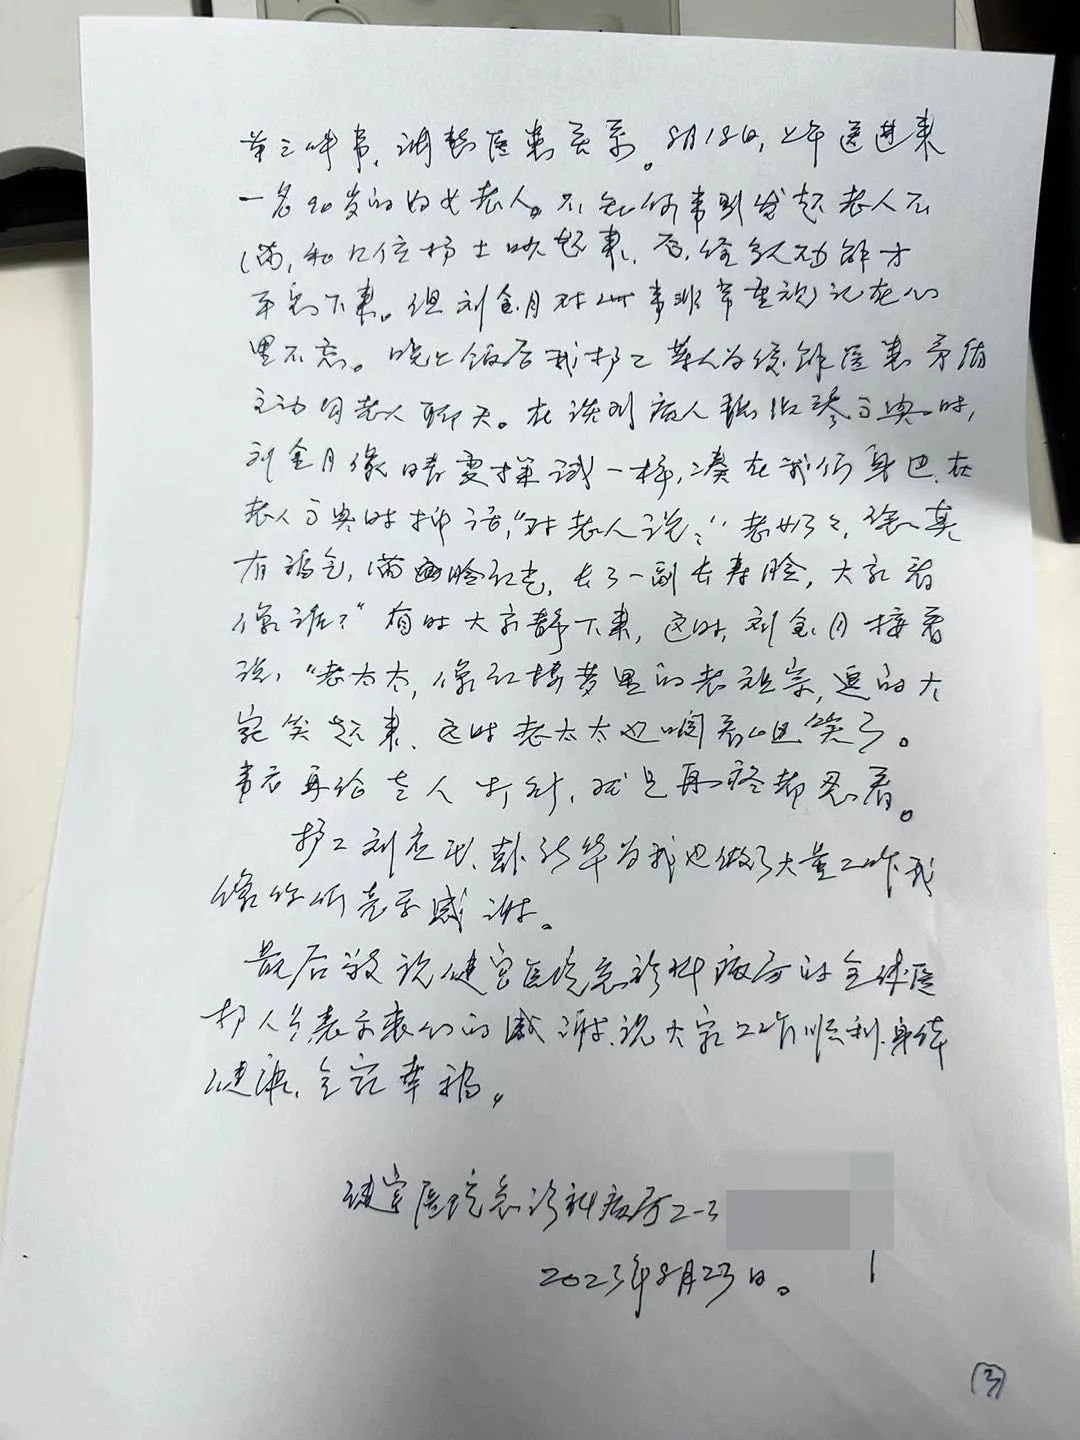 第三件事,调整医患关系。8月18日,上午送进来
一名90岁的妇女老人。不知何事引发起老人不
满,和几位护士吵起来,后经多人劝解才
平息下来。但刘金月对此事非常重视记在心
里不忘。晚上饭后我护工等人为缓解医患矛盾
主动同老人聊天。在谈到病人
刘金月像 一样,凑在我们身边,在
老人 时 话,"对老人说:"老奶奶,您真
有福气,满面脸红光,长了一副长寿脸,大家看
像谁?"有时大家静下来,这时,刘金月接着
说,"老太太,像红楼梦里的老祖宗,逗的大
家笑起来,这时老太太也 着嘴笑了。
事后再给老人打针,就是再疼都忍着。
护工刘 、彭 华为我也做了大量工作我
像你们表示感谢。
最后 祝健宫医院急诊科病房的全体医
护人员表示衷心的感谢,祝大家工作顺利.身体
健康.全家幸福。
健宫医院急诊科病房2-3
2023年8月23日。
③